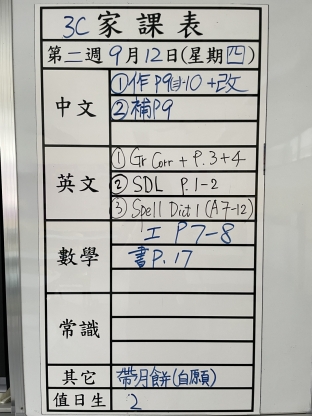 3C 家課表
第二週9月12日(星期四)
中文
①作P9目-10+改
②補P9
英文
① Gr Corr + P.3+4
② SDL P.1-2
③ Spell Dict 1 (A7-12)
數學
工 P7-8
書P.17
常識
其它
帶月餅(自願)
值日生
2